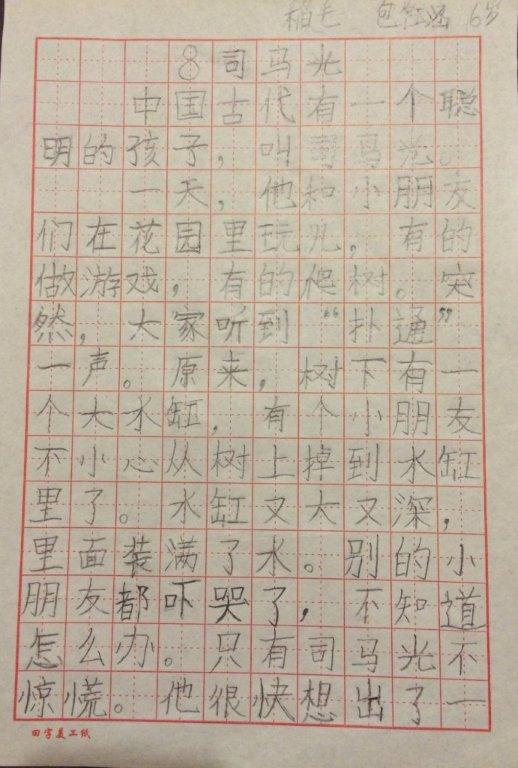 稻毛 包红 6岁
8 司马光
中国古代有一个聪
明的孩子，叫司马光。
一天，他和小朋友
们在花园里玩儿，有的
做游戏，有的爬树。突
然，大家听到“扑通”
一声。原来，树下有一
个大水缸，有个小朋友
不小心从树上掉到水缸
里了。水缸又大又深，
里面装满了水。别的小
朋友都吓哭了，不知道
怎么办。只有司马光不
惊慌。他很快想出了一
田字美工纸